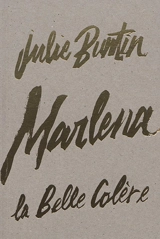 Julie Buntin
Marlena
la Belle Colère